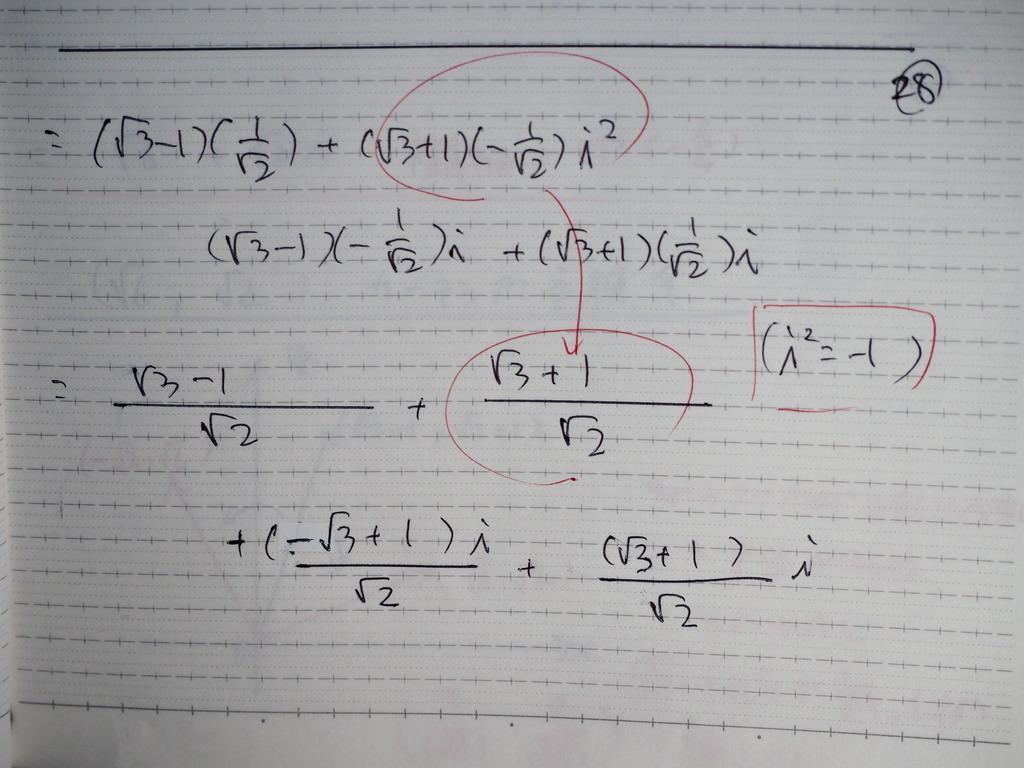 28
= (√3-1)(1/√2) + (√3+1)(-1/√2)i²
(√3-1)(-1/√2)i + (√3+1)(1/√2)i
= (√3-1)/√2 + (√3+1)/√2 (i²=-1)
+ (-√3+1)i/√2 + (√3+1)/√2 i